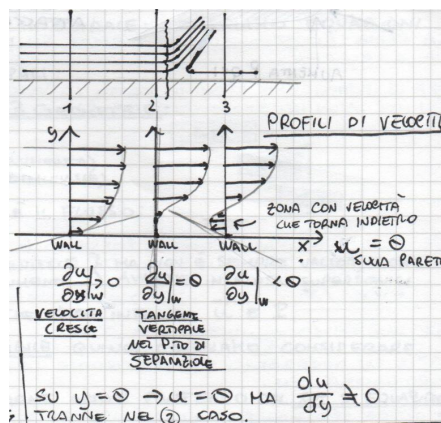 1 2 3
PROFILI DI VELOCITÀ
y
ZONA CON VELOCITÀ
CHE TORNA INDIETRO
WALL WALL WALL x u = 0
SULLA PARETE
∂u/∂y|w > 0 ∂u/∂y|w = 0 ∂u/∂y|w < 0
VELOCITÀ
CRESCE
TANGENTE
VERTICALE
NEL P.TO DI
SEPARAZIONE
SU y = 0 → u = 0 MA du/dy ≠ 0
TRANNE NEL (2) CASO.